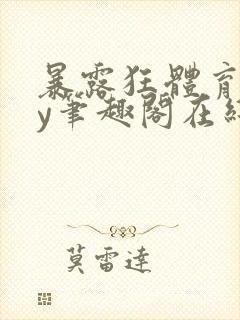 暴露狂體育
y筆趣閣在
莫雷達